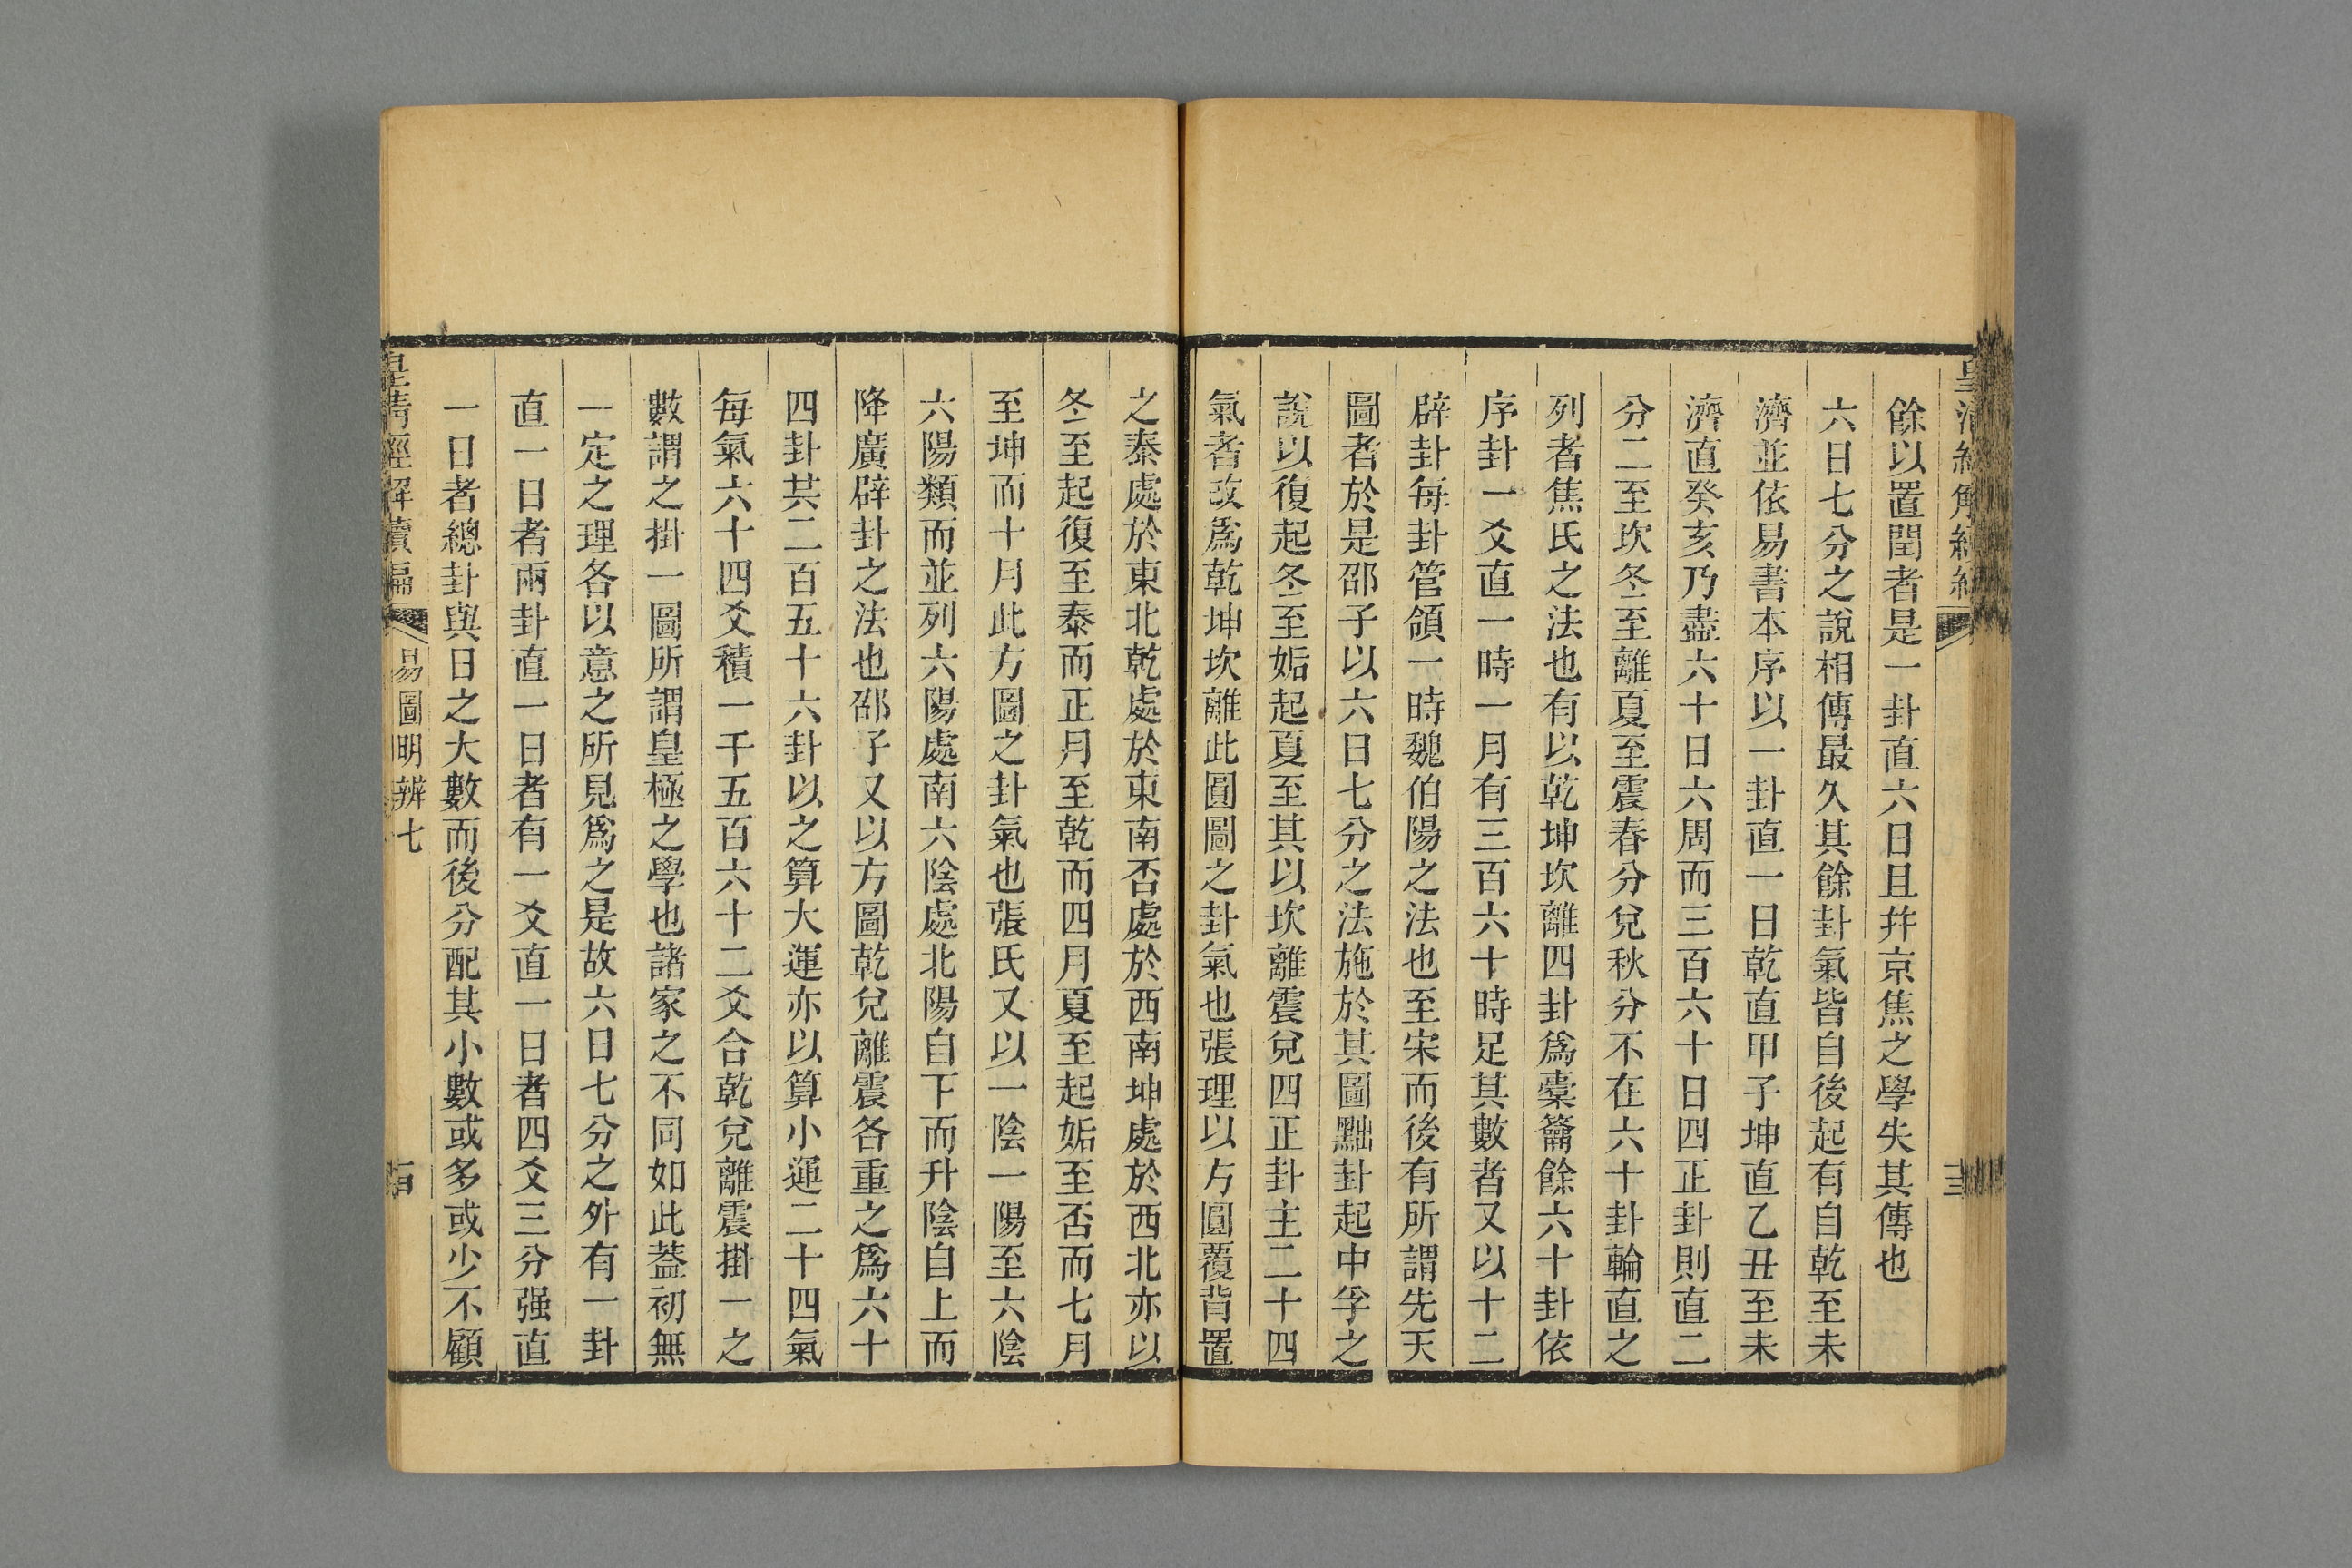 餘以置閏者是一卦直六日且幷京焦之學失其傳也
六日七分之說相傳最久其餘卦氣皆自後起有自乾至未
濟並依易書本序以一卦直一日乾直甲子坤直乙丑至未
濟直癸亥乃盡六十日六周而三百六十日四正卦則直二
分二至坎冬至離夏至震春分兌秋分不在六十卦輪直之
列者焦氏之法也有以乾坤坎離四卦爲橐籥餘六十卦依
序卦一爻直一時一月有三百六十時足其數者又以十二
辟卦每卦管領一時魏伯陽之法也至宋而後有所謂先天
圖者於是邵子以六日七分之法施於其圖黜卦起中孚之
說以復起冬至姤起夏至其以坎離震兌四正卦主二十四
氣者改爲乾坤坎離此圓圖之卦氣也張理以方圓覆背置
之泰處於東北乾處於東南否處於西南坤處於西北亦以
冬至起復至泰而正月至乾而四月夏至起姤至否而七月
至坤而十月此方圖之卦氣也張氏又以一陰一陽至六陰
六陽類而並列六陽處南六陰處北陽自下而升陰自上而
降廣辟卦之法也邵子又以方圖乾兌離震各重之爲六十
四卦其二百五十六卦以之算大運亦以算小運二十四氣
每氣六十四爻積一千五百六十二爻合乾兌離震掛一之
數謂之掛一圖所謂皇極之學也諸家之不同如此蓋初無
一定之理各以意之所見爲之是故六日七分之外有一卦
直一日者兩卦直一日者有一爻直一日者四爻三分强直
一日者總卦與日之大數而後分配其小數或多或少不顧
皇清經解續編
易圖明辨七